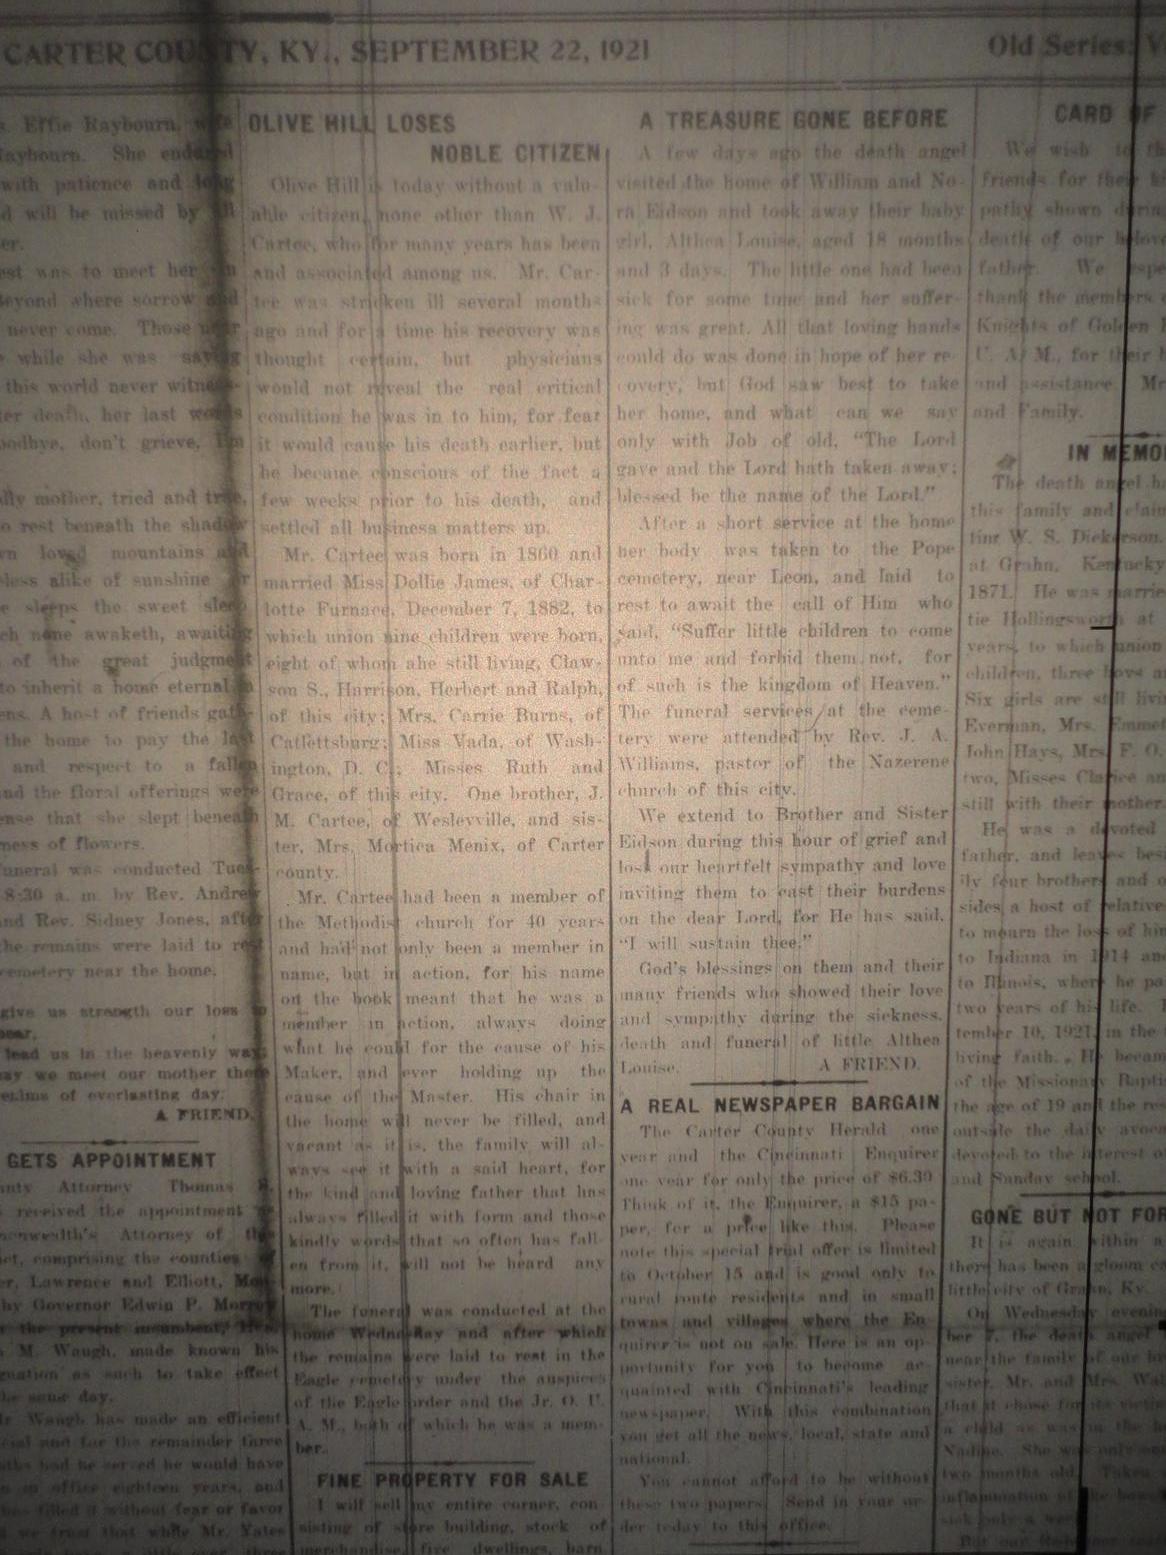 CARTER COUNTY, KY., SEPTEMBER 22, 1921
Old Series
Effie Raybourn,
Raybourn. She endured
with patience and long
will be missed by all
was to meet her
beyond where sorrow and
never come. Those near
while she was saying
this world never witness-
death, her last words
don't grieve, I'm
mother, tried and true,
rest beneath the shadow
loved mountains and
alike of sunshine or
sleeps the sweet sleep
none awaketh, awaiting
of the great judgment
to inherit a home eternal
A host of friends gath-
the home to pay the last
and respect to a fallen
and the floral offerings were
that she slept beneath
of flowers.
funeral was conducted Tues-
8:30 a. m. by Rev. Andrew
and Rev. Sidney Jones, after
the remains were laid to rest
cemetery near the home.
give us strength our loss to
bear,
lead us in the heavenly way
may we meet our mother there
of everlasting day.
A FRIEND.
GETS APPOINTMENT
Attorney Thomas
received the appointment
Attorney of the
comprising the counties
Lawrence and Elliott,
by Governor Edwin P. Morrow
the present incumbent,
M. Waugh, made known his
as such to take effect
same day.
Waugh has made an efficient
and for the remainder three
had he served he would have
in office eighteen years, and
filled it without fear or favor
we trust that while Mr. Yates
OLIVE HILL LOSES
NOBLE CITIZEN
Olive Hill is today without a valu-
able citizen, none other than W. J.
Cartee, who for many years has been
and associated among us. Mr. Car-
tee was stricken ill several months
ago and for a time his recovery was
thought certain, but physicians
would not reveal the real critical
condition he was in to him, for fear
it would cause his death earlier, but
he became conscious of the fact a
few weeks prior to his death, and
settled all business matters up.
Mr. Cartee was born in 1860 and
married Miss Dollie James, of Char-
lotte Furnace, December 7, 1882, to
which union nine children were born,
eight of whom ahe still living, Claw-
son S., Harrison, Herbert and Ralph,
of this city; Mrs. Carrie Burns, of
Catlettsburg; Miss Vada, of Wash-
ington, D. C.; Misses Ruth and
Grace, of this city. One brother, J.
M. Cartee, of Wesleyville, and sis-
ter, Mrs. Mortica Menix, of Carter
county.
Mr. Cartee had been a member of
the Methodist church for 40 years
and had not only been a member in
name, but in action, for his name
on the book meant that he was a
member in action, always doing
what he could for the cause of his
Maker, and ever holding up the
cause of the Master. His chair in
the home will never be filled, and
vacant as it is, the family will al-
ways see it with a said heart, for
the kind and loving father that has
always filled it with form and those
kindly words that so often has fall-
en from it, will not be heard any
more.
The funeral was conducted at the
home Wednesday and after which
the remains were laid to rest in the
Eagle cemetery under the auspices
of the Eagle order and the Jr. O. U.
A. M., both of which he was a mem-
ber.
FINE PROPERTY FOR SALE
I will sell my entire corner, con-
sisting of store building, stock of
merchandise, five dwellings, barn
A TREASURE GONE BEFORE
A few days ago the death angel
visited the home of William and No-
ra Eidson and took away their baby
girl, Althea Louise, aged 18 months
and 3 days. The little one had been
sick for some time and her suffer-
ing was great. All that loving hands
could do was done in hope of her re-
covery, but God saw best to take
her home, and what can we say
only with Job of old, “The Lord
gave and the Lord hath taken away;
blessed be the name of the Lord.”
After a short service at the home
her body was taken to the Pope
cemetery, near Leon, and laid to
rest to await the call of Him who
said, “Suffer little children to come
unto me and forbid them not, for
of such is the kingdom of Heaven.”
The funeral services at the ceme-
tery were attended by Rev. J. A.
Williams, pastor of the Nazerene
church of this city.
We extend to Brother and Sister
Eidson during this hour of grief and
lost our heartfelt sympathy and love
inviting them to cast their burdens
on the dear Lord, for He has said,
“I will sustain thee.”
God's blessings on them and their
many friends who showed their love
and sympathy during the sickness,
death and funeral of little Althea
Louise. A FRIEND.
A REAL NEWSPAPER BARGAIN
The Carter County Herald one
year and the Cincinnati Enquirer
one year for only the price of $6.30
Think of it, the Enquirer, a $15 pa-
per, for a price like this. Please
note this special trial offer is limited
to October 15 and is good only to
rural route residents and in small
towns and villages where the En-
quirer is not on sale. Here is an op-
portunity for you to become ac-
quainted with Cincinnati's leading
newspaper. With this combination
you get all the news, local, state and
national.
You cannot afford to be without
these two papers. Send in your or-
der today to this office.
CARD OF
We wish to
friends for their
pathy shown during
death of our
father. We
thank the members
Knights of Golden
U. A. M., for their
and assistance. Mr
and Family.
IN
The death angel
this family and
W. S. Dickerson.
at Grahn, Kentucky
1871. He was
tie Hollingsworth at
years, to which union
children, three boys
Six girls are still
Everman, Mrs. Emmet
John Hays, Mrs. F. O.
two, Misses Clarice
still with their mother.
He was a devoted
father, and leaves
ily four brothers and
sides a host of
to mourn the loss of
to Indiana in 1914
to Illinois, where he
two years of his life.
tember 10, 1921, in the
living faith. He
of the Missionary
the age of 19 and the
outside the daily
devoted to the interest of
and Sunday school.
GONE BUT NOT
It is again within
there has been a gloom
little city of Grahn, Ky.
On Wednesday evening
her 7, the death angel
near the family of our
sister, Mr. and Mrs.
that it chose for its
a child as was in the
Nadine. She was only
two months old. Taken
inflammation of the
sick only a
But our